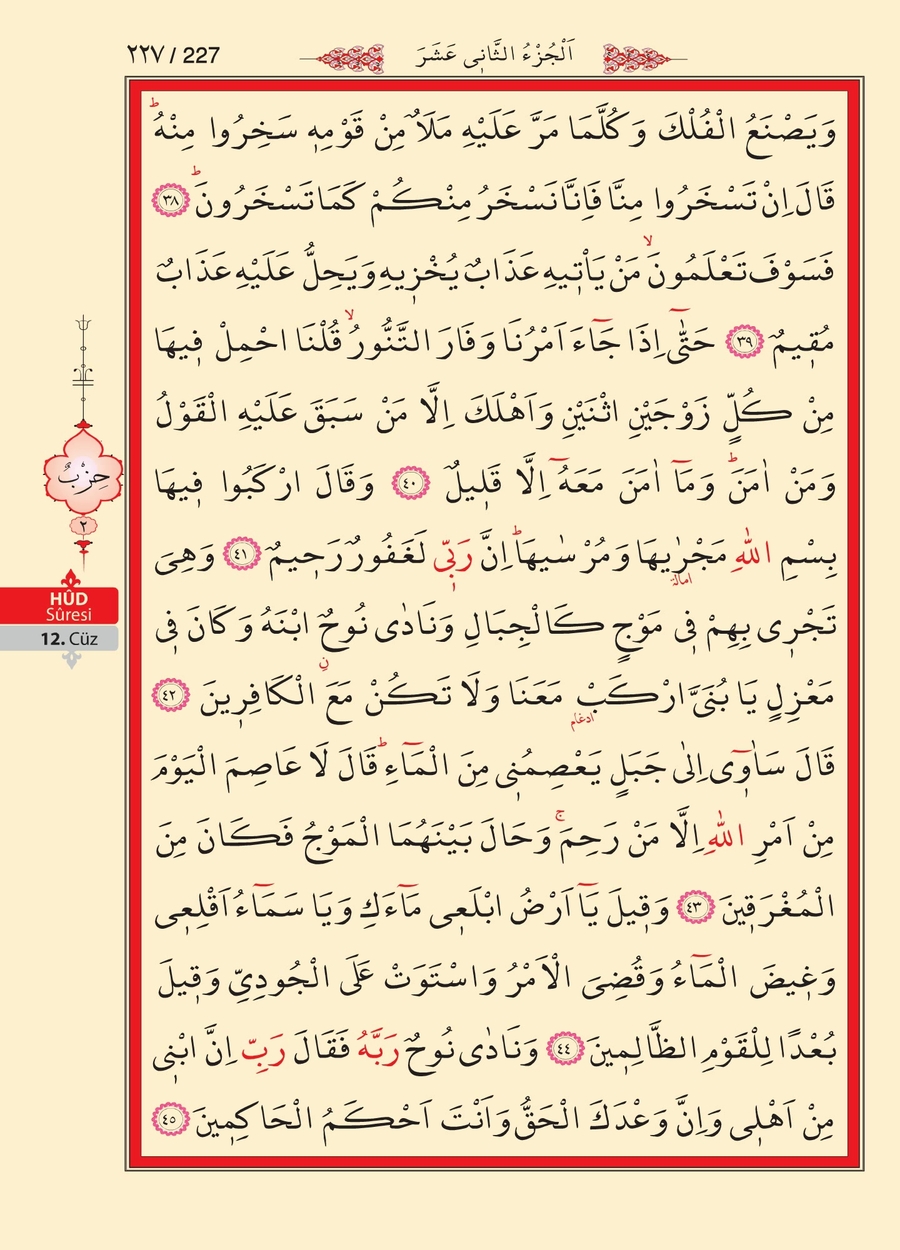 ٢٢٧ / 227
اَلْجُزْءُ الثَّانٖى عَشَرَ
وَيَصْنَعُ الْفُلْكَ وَكُلَّمَا مَرَّ عَلَيْهِ مَلَاٌ مِنْ قَوْمِهٖ سَخِرُوا مِنْهُؕ
قَالَ اِنْ تَسْخَرُوا مِنَّا فَاِنَّا نَسْخَرُ مِنْكُمْ كَمَا تَسْخَرُونَؕ ٣٨
فَسَوْفَ تَعْلَمُونَۙ مَنْ يَاْتٖيهِ عَذَابٌ يُخْزٖيهِ وَيَحِلُّ عَلَيْهِ عَذَابٌ
مُقٖيمٌ ٣٩ حَتّٰٓى اِذَا جَٓاءَ اَمْرُنَا وَفَارَ التَّنُّورُۙ قُلْنَا احْمِلْ فٖيهَا
مِنْ كُلٍّ زَوْجَيْنِ اثْنَيْنِ وَاَهْلَكَ اِلَّا مَنْ سَبَقَ عَلَيْهِ الْقَوْلُ
وَمَنْ اٰمَنَؕ وَمَٓا اٰمَنَ مَعَهُٓ اِلَّا قَلٖيلٌ ٤٠ وَقَالَ ارْكَبُوا فٖيهَا
بِسْمِ اللّٰهِ مَجْرٰۭيهَا وَمُرْسٰيهَاؕ اِنَّ رَبّٖى لَغَفُورٌ رَحٖيمٌ ٤١ وَهِىَ
امالة
تَجْرٖى بِهِمْ فٖى مَوْجٍ كَالْجِبَالِ وَنَادٰى نُوحٌۨ ابْنَهُ وَكَانَ فٖى
مَعْزِلٍ يَا بُنَىَّ ارْكَبْ مَعَنَا وَلَا تَكُنْ مَعَ الْكَافِرٖينَ ٤٢
ادغام
قَالَ سَاٰوٖٓى اِلٰى جَبَلٍ يَعْصِمُنٖى مِنَ الْمَٓاءِؕ قَالَ لَا عَاصِمَ الْيَوْمَ
مِنْ اَمْرِ اللّٰهِ اِلَّا مَنْ رَحِمَۚ وَحَالَ بَيْنَهُمَا الْمَوْجُ فَكَانَ مِنَ
الْمُغْرَقٖينَ ٤٣ وَقٖيلَ يَٓا اَرْضُ ابْلَعٖى مَٓاءَكِ وَيَا سَمَٓاءُ اَقْلِعٖى
وَغٖيضَ الْمَٓاءُ وَقُضِىَ الْاَمْرُ وَاسْتَوَتْ عَلَى الْجُودِىِّ وَقٖيلَ
بُعْدًا لِلْقَوْمِ الظَّالِمٖينَ ٤٤ وَنَادٰى نُوحٌ رَبَّهُ فَقَالَ رَبِّ اِنَّ ابْنٖى
مِنْ اَهْلٖى وَاِنَّ وَعْدَكَ الْحَقُّ وَاَنْتَ اَحْكَمُ الْحَاكِمٖينَ ٤٥
حِزْبٌ
٢
HÛD
Sûresi
12. Cüz